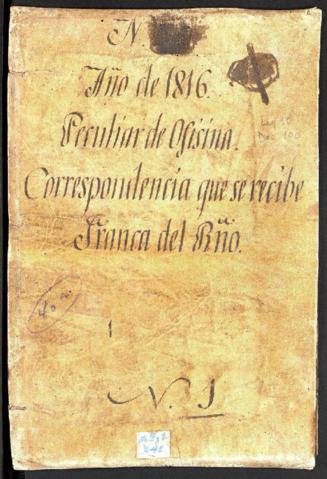 N
Año de 1816.
Peculiar de Ofisina.
Correspondencia que se recibe
Franca del Rño.
1
N. 1